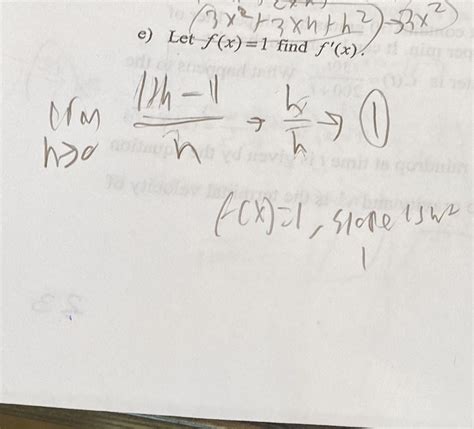 (3x²+3xh+h²)→3x²)
e) Let f(x)=1 find f'(x).
lim h→0 1+h-1/h → h/h → 1
f(x)=1, slope is
1